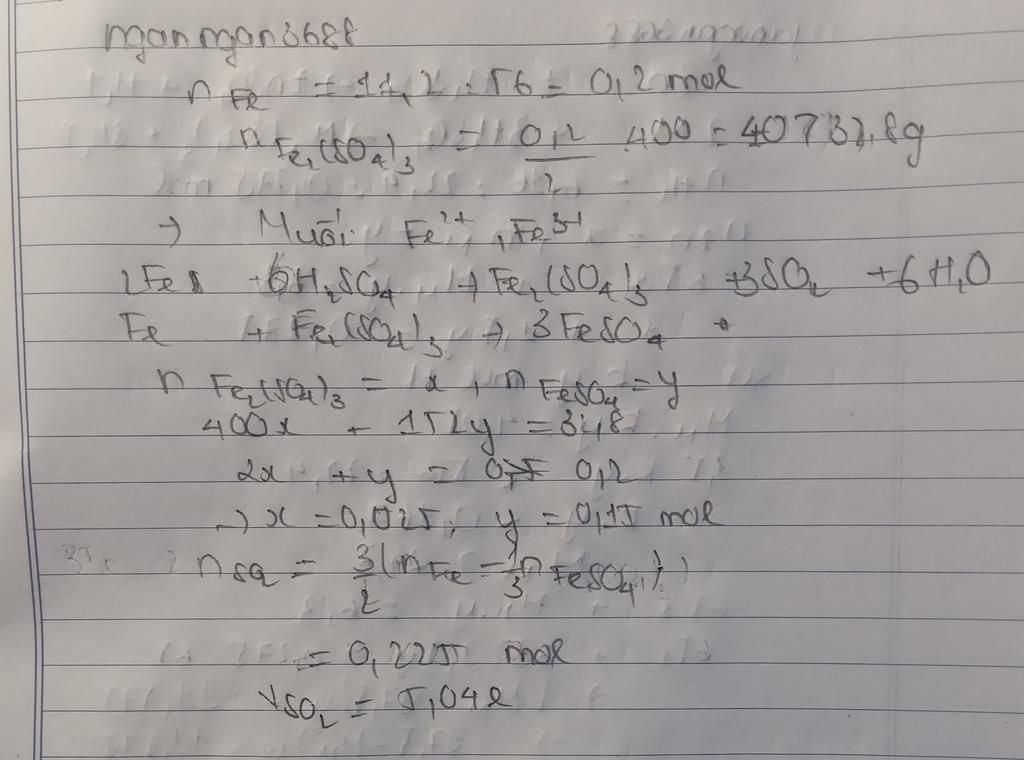 ngan ngan 3688
n Fe = 11,2 : 56 = 0,2 mol
n Fe₂(SO₄)₃ = 0,2/2 400 = 40 > 32,8g
→ Muối: Fe²⁺, Fe³⁺
2Fe + 6H₂SO₄ → Fe₂(SO₄)₃ + 3SO₂ + 6H₂O
Fe + Fe₂(SO₄)₃ → 3FeSO₄
n Fe₂(SO₄)₃ = x, n FeSO₄ = y
400x + 152y = 32,8
2x + y = 0,2
→ x = 0,025; y = 0,15 mol
n SO₂ = 3/2 (n Fe - 1/3 n FeSO₄)
= 0,225 mol
V SO₂ = 5,04 l